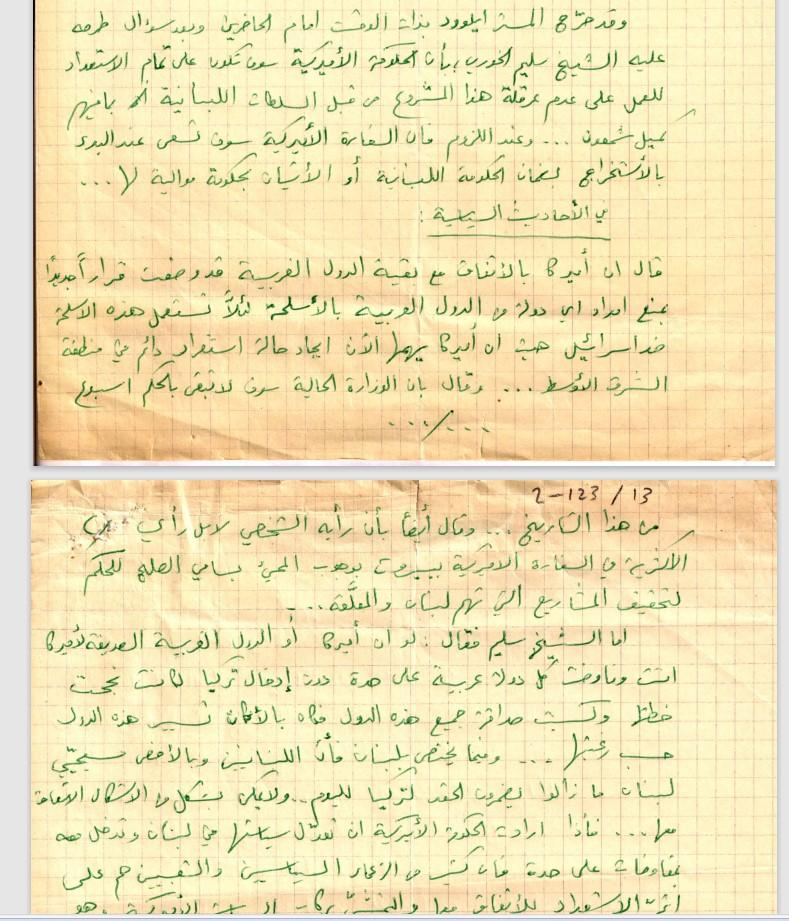 وقد صرّح المستر ايلوود بذات الوقت امام الحاضرين وبعد سؤال طرحه
عليه الشيخ سليم الخوري، بأن الحكومة الأميركية سوف تكون على تمام الاستعداد
للعمل على عدم عرقلة هذا المشروع من قبل السلطات اللبنانية بما فيهم
كميل شمعون ... وعند اللزوم فان السفارة الأميركية سوف تسعى عند البدء
بالأستخراج لضمان الحكومة اللبنانية أو الأتيان بحكومة موالية لها ...
في الأحاديث السياسية :
قال ان أميركا بالأتفاق مع بقية الدول الغربية قد وضعت قراراً جديداً
بمنع امداد اي دولة من الدول العربية بالأسلحة لئلاَّ تستعمل هذه الاسلحة
ضد اسرائيل حيث ان أميركا يهمها الآن ايجاد حالة استقرار دائم في منطقة
الشرق الأوسط ... وقال بان الوزارة الحالية سوف لا تبقى بالحكم اسبوع
.../...
2-123/13
من هذا التاريخ ... وقال أيضاً بأن رأيه الشخصي لا بل رأي
الأكثرية في السفارة الاميركية ببيروت بوجوب المجيء بسامي الصلح للحكم
لتحقيق المشاريع التي تهم لبنان والمعلَّقة ...
اما الشيخ سليم فقال : لو ان أميركا أو الدول الغربية الصديقة لأميركا
اتت وفاوضت كل دولة عربية على حدة دون إدخال تركيا لكانت نجحت
خطتها وكسبت صداقة جميع هذه الدول فكان بالأمكان تسيير هذه الدول
حسب رغبتها ... وفيما يختص بلبنان فأن اللبنانيين وبالأخص مسيحيّي
لبنان ما زالوا يضمرون الحقد لتركيا لليوم .. ولا يمكن بشكل من الاشكال الأتفاق
معها ... فأذا ارادت الحكومة الأميركية ان تعدّل سياستها في لبنان وتدخل معه
بمفاوضات على حدة فان كثير من الزعماء السياسيين والشعبيين هم على
اتمّ الاستعداد للأتفاق معها